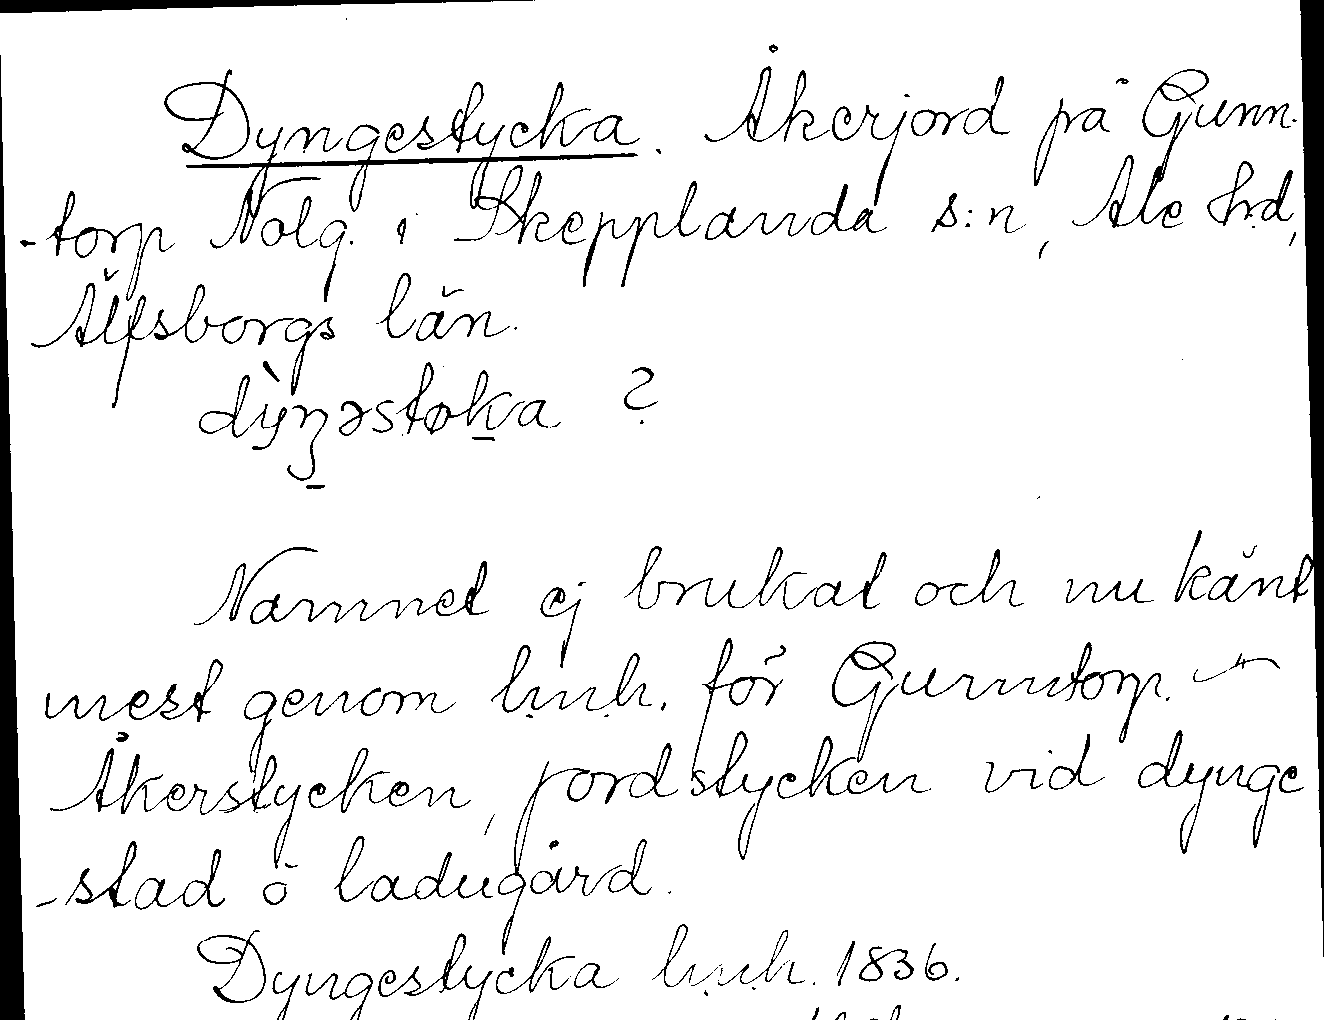 Dyngestycka. Åkerjord på Gunn-
-torp Nolg. i Skepplanda s:n, Ale hd,
Älfsborgs län.
dỳŋəstøka ?
Namnet ej brukat och nu känt
mest genom hmh. för Gunntorp. —"—
Åkerstycken, jordstycken vid dynge
-stad o ladugård.
Dyngestycka hmh. 1836.